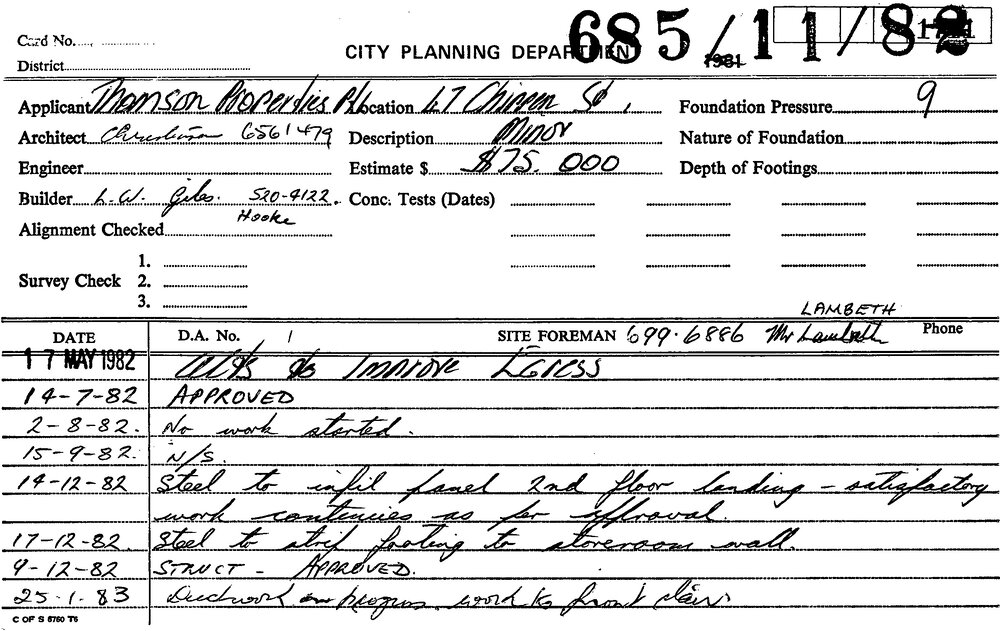 685/11/82
Card No.
CITY PLANNING DEPARTMENT 1981
District
Applicant Thomson Properties P/L Location 47 Chippen St. Foundation Pressure 9
Architect Christiansen 6561479 Description Minor Nature of Foundation
Engineer Estimate $ $75.000 Depth of Footings
Builder L.W. Giles. 520-4122. Conc. Tests (Dates)
Hooke
Alignment Checked
1.
Survey Check 2.
3.
LAMBETH
DATE D.A. No. / SITE FOREMAN 699.6886 Mr Lambeth Phone
17 MAY 1982 Alts to Improve Egress
14-7-82 APPROVED
2-8-82. No work started.
15-9-82. N/S.
14-12-82 Steel to infil panel 2nd floor landing - satisfactory
work continues as per approval.
17-12-82. Steel to strip footing to storeroom wall.
9-12-82 STRUCT - APPROVED.
25.1.83 Ductwork in progress. work to front stairs
C OF S 5760 T6